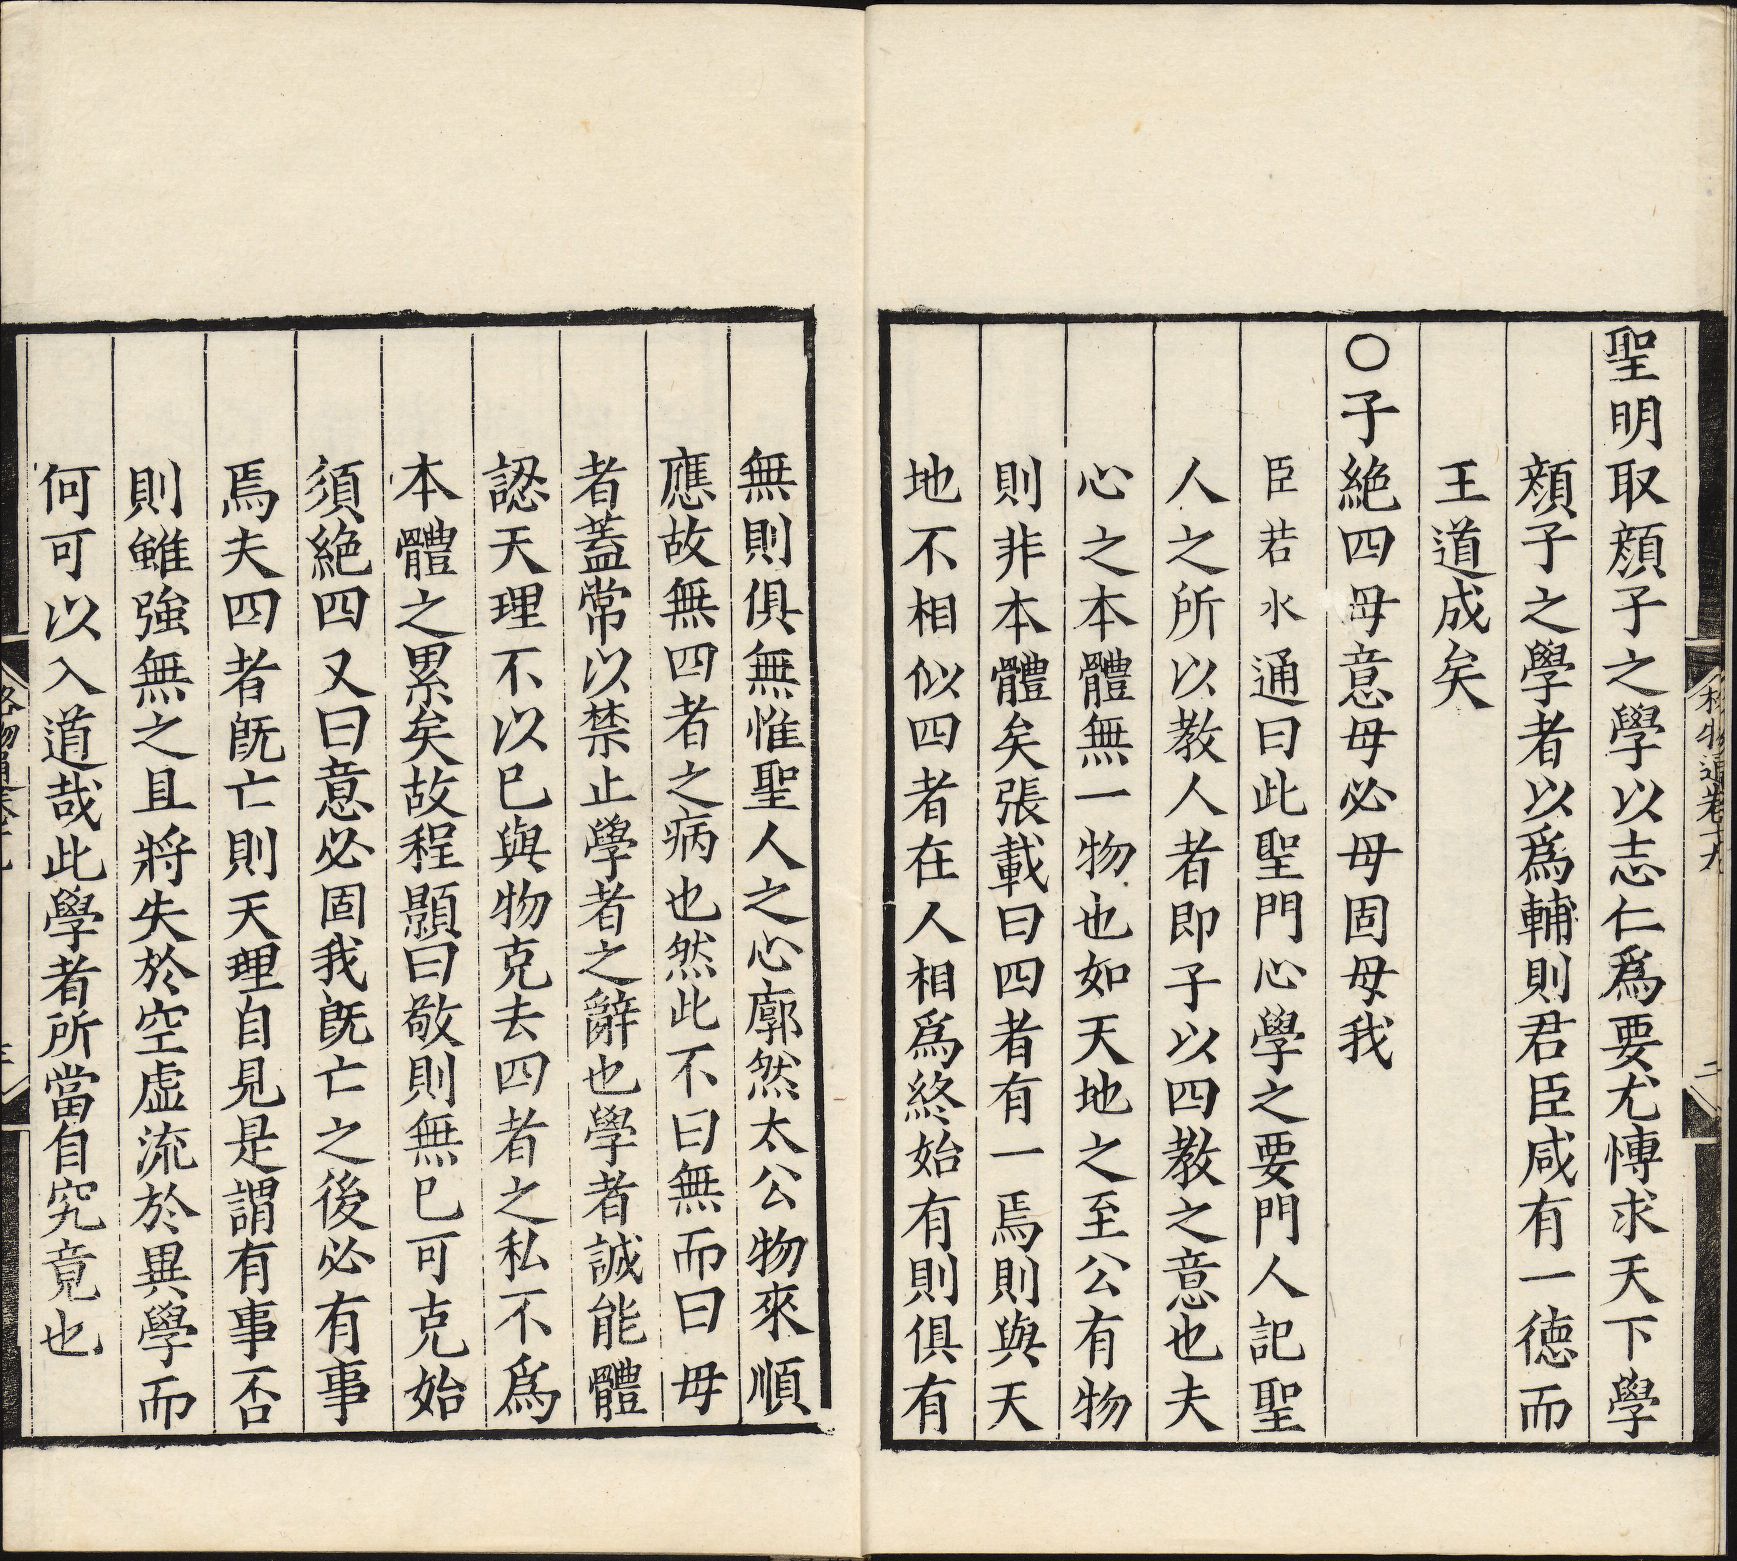 聖明取顔子之學以志仁爲要尤慱求天下學
顔子之學者以爲輔則君臣咸有一徳而
王道成矣
○子絶四毋意毋必毋固毋我
臣若水通曰此聖門心學之要門人記聖
人之所以教人者即子以四教之意也夫
心之本體無一物也如天地之至公有物
則非本體矣張載曰四者有一焉則與天
地不相似四者在人相爲終始有則俱有
無則俱無惟聖人之心廓然太公物來順
應故無四者之病也然此不曰無而曰毋
者蓋常以禁止學者之辭也學者誠能體
認天理不以已與物克去四者之私不爲
本體之累矣故程顥曰敬則無已可克始
須絶四又曰意必固我旣亡之後必有事
焉夫四者旣亡則天理自見是謂有事否
則雖強無之且將失於空虛流於異學而
何可以入道哉此學者所當自究竟也